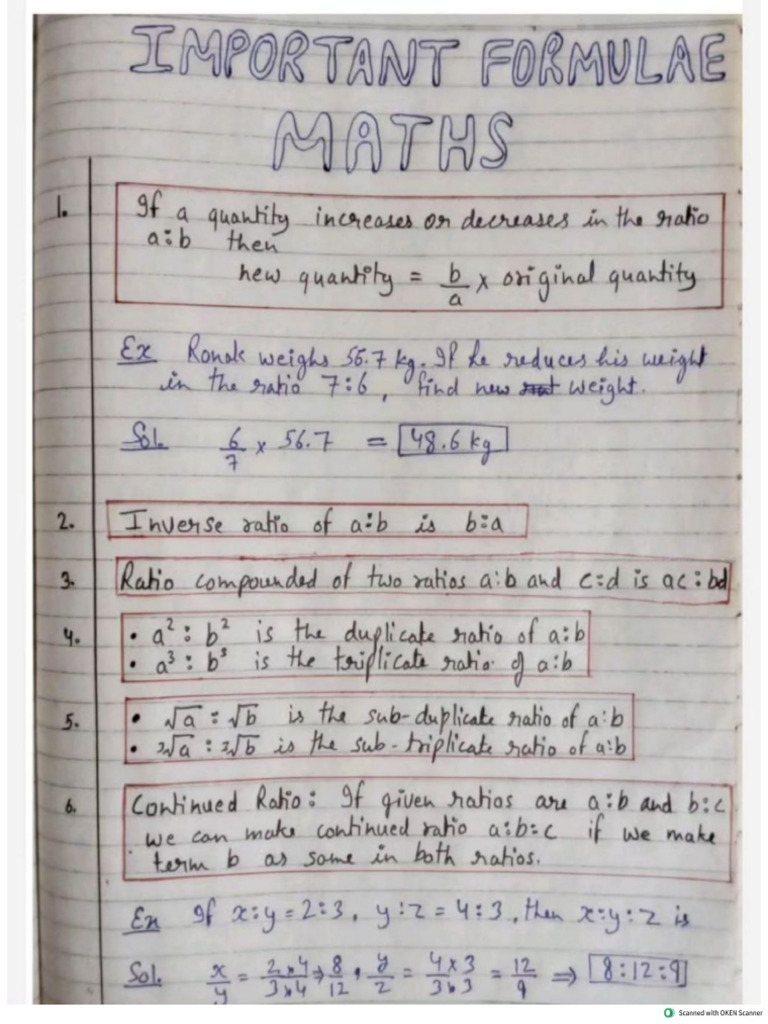 IMPORTANT FORMULAE
MATHS
1. If a quantity increases or decreases in the ratio
a:b then
new quantity = b/a × original quantity
Ex Ronak weighs 56.7 kg. If he reduces his weight
in the ratio 7:6, find new weight.
Sol. 6/7 × 56.7 = 48.6 kg
2. Inverse ratio of a:b is b:a
3. Ratio compounded of two ratios a:b and c:d is ac:bd
4. • a² : b² is the duplicate ratio of a:b
• a³ : b³ is the triplicate ratio of a:b
5. • √a : √b is the sub-duplicate ratio of a:b
• ³√a : ³√b is the sub-triplicate ratio of a:b
6. Continued Ratio: If given ratios are a:b and b:c
we can make continued ratio a:b:c if we make
term b as same in both ratios.
Ex If x:y = 2:3, y:z = 4:3, then x:y:z is
Sol. x/y = 2×4/3×4 ⇒ 8/12, y/z = 4×3/3×3 = 12/9 ⇒ 8:12:9
Scanned with OKEN Scanner